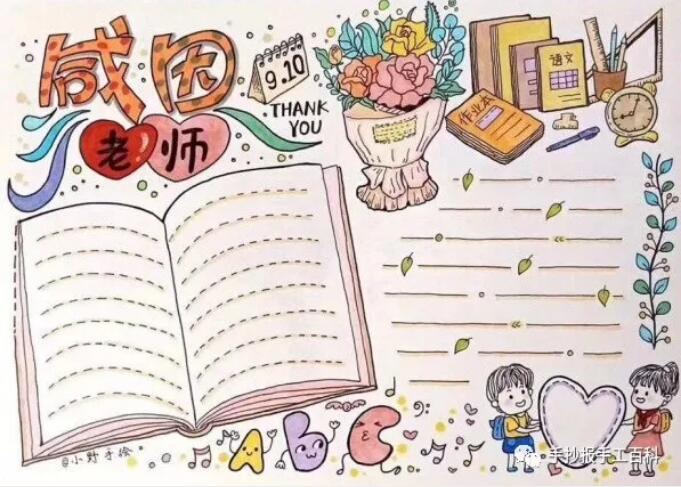 感恩
老师
9.10
THANK
YOU
语文
作业本
ABC
@小野手绘
手抄报手工百科